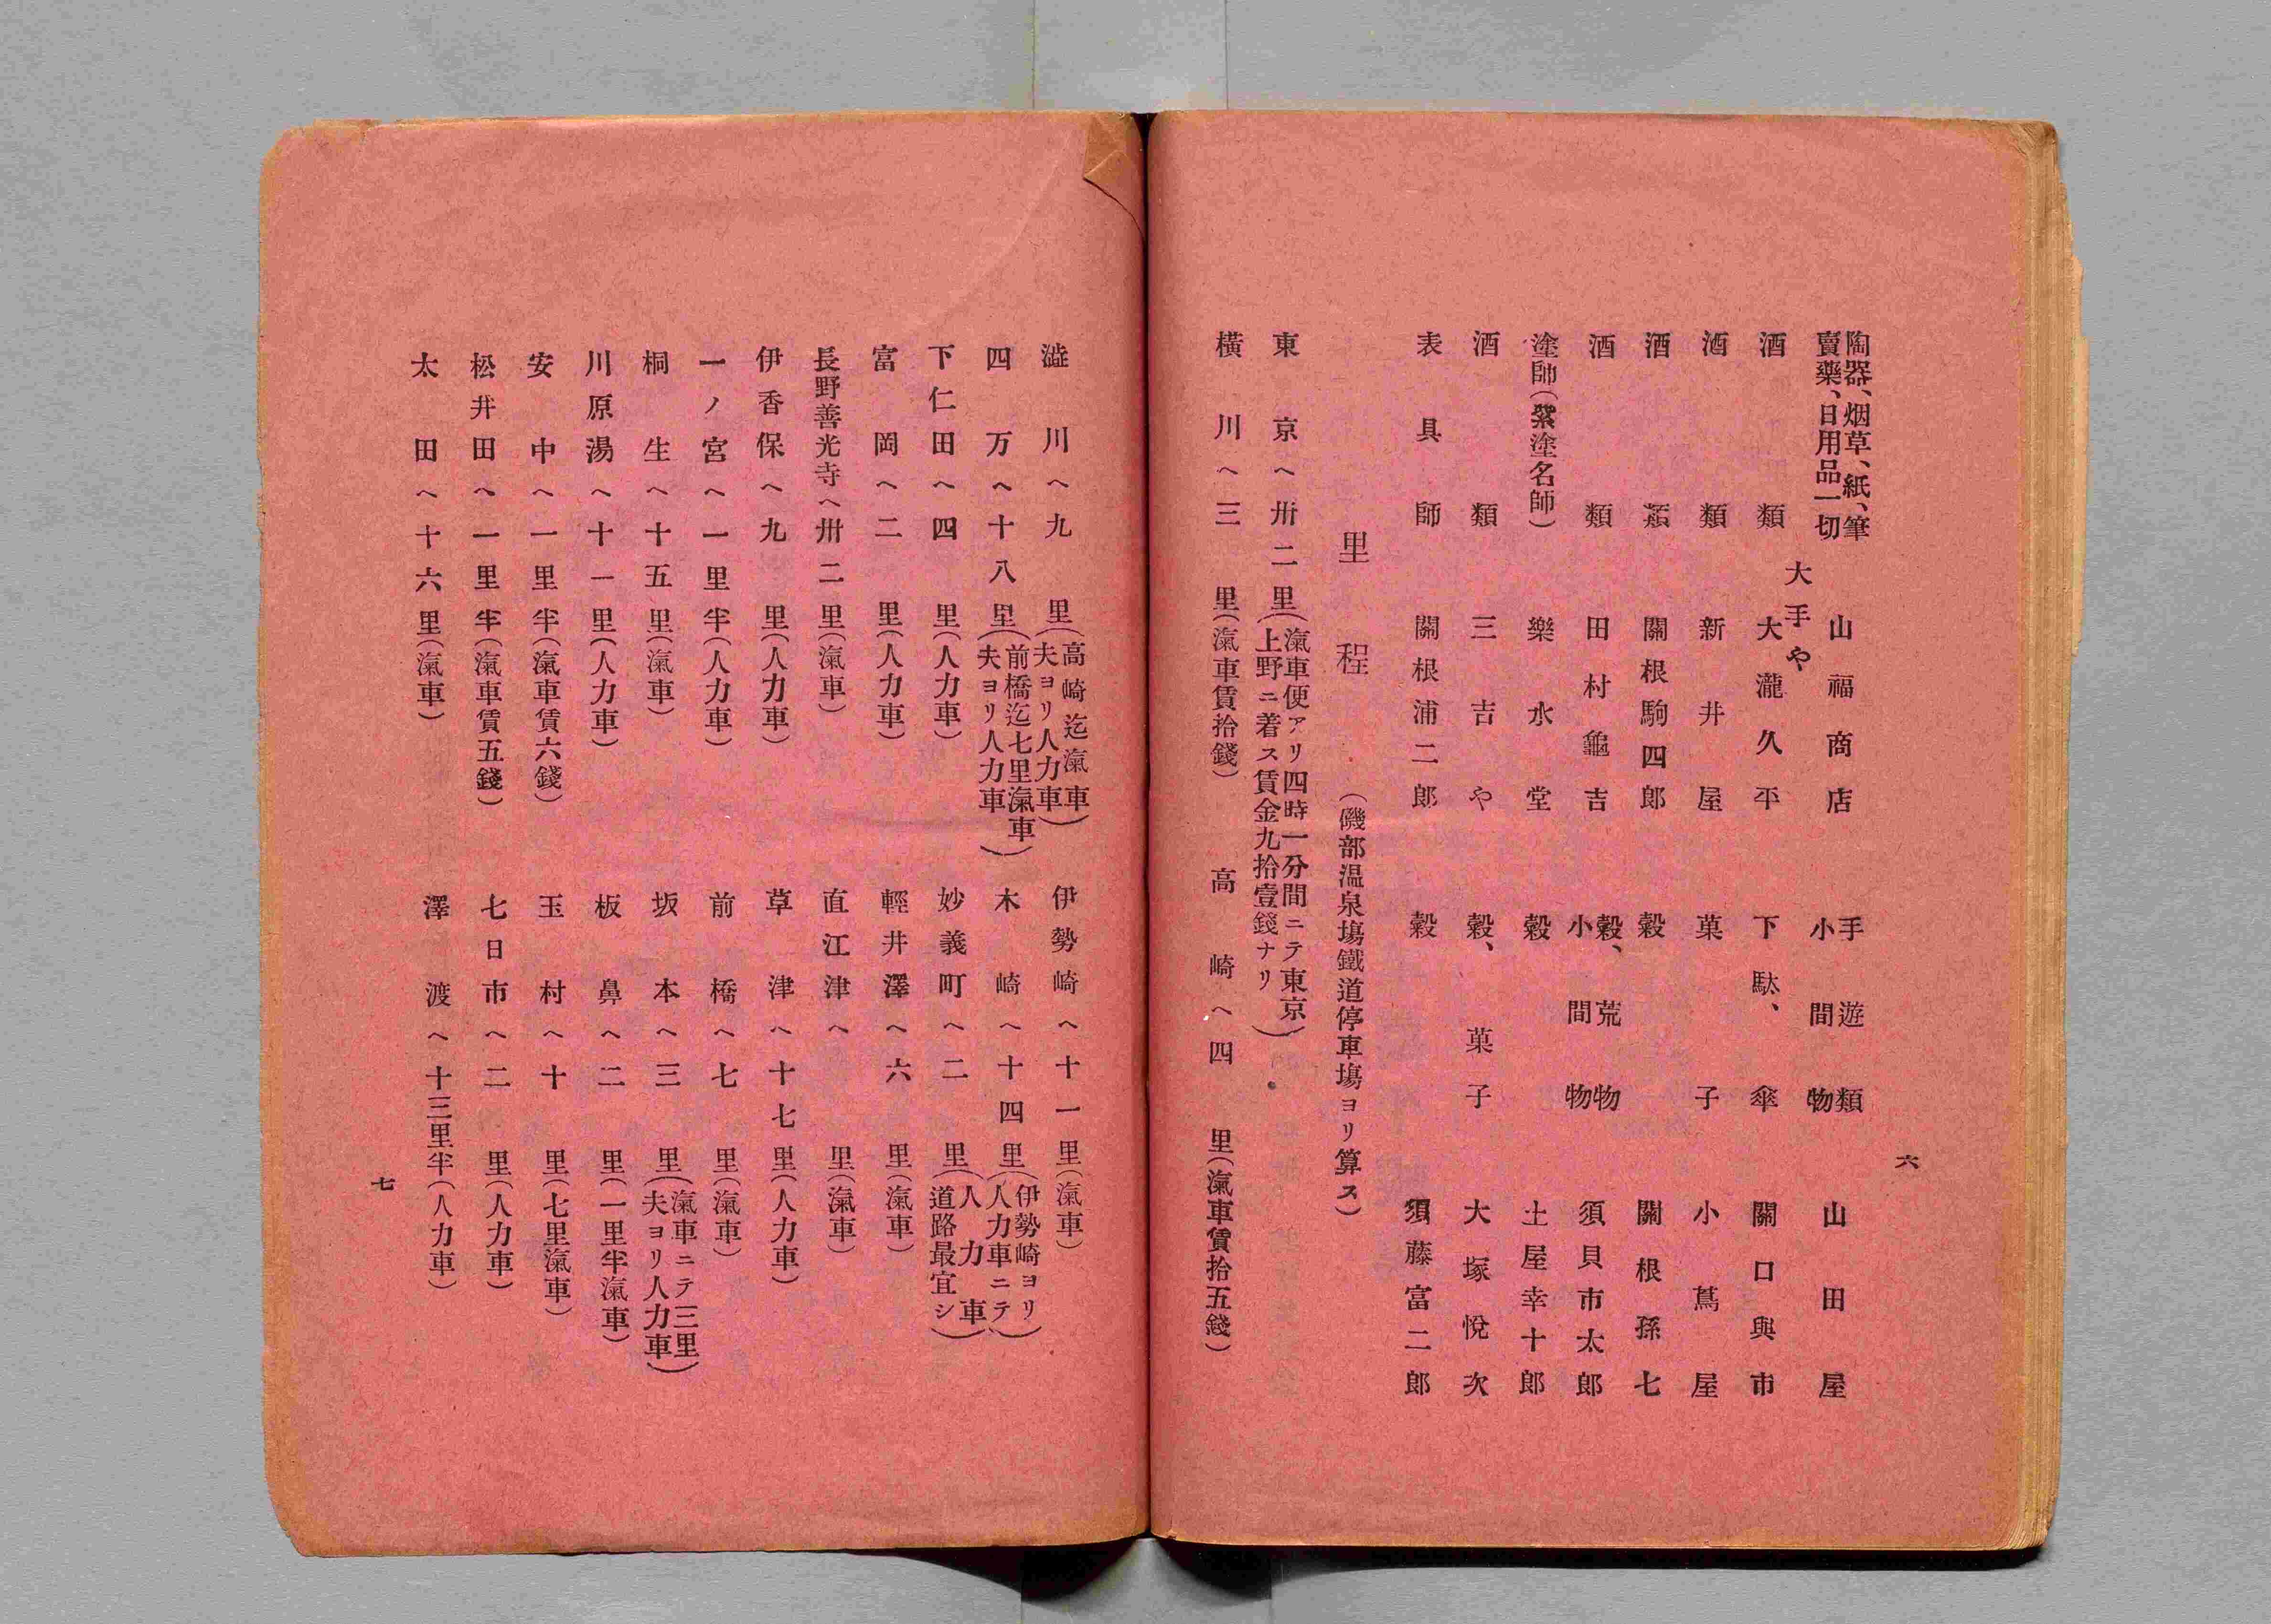 六
陶器、烟草、紙、筆
賣藥、日用品一切
山福商店
手遊類
小間物
山田屋
酒類
大手や
大瀧久平
下駄、傘
關口與市
酒類
新井屋
菓子
小蔦屋
酒類
關根駒四郎
穀
關根孫七
酒類
田村龜吉
穀、荒物
小間物
須貝市太郎
塗師(紫塗名師)
樂水堂
穀
土屋幸十郎
酒類
三吉や
穀、菓子
大塚悅次
表具師
關根浦二郎
穀
須藤富二郎
里程
(磯部温泉塲鐵道停車塲ヨリ算ス)
東京ヘ卅二里(滊車便アリ四時一分間ニテ東京
上野ニ着ス賃金九拾壹錢ナリ)
橫川ヘ三里(滊車賃拾錢)
高崎ヘ四里(滊車賃拾五錢)
澁川ヘ九里(高崎迄滊車
夫ヨリ人力車)
伊勢崎ヘ十一里(滊車)
四万ヘ十八里(前橋迄七里滊車
夫ヨリ人力車)
木崎ヘ十四里(伊勢崎ヨリ
人力車ニテ)
下仁田ヘ四里(人力車)
妙義町ヘ二里(人力車
道路最宜シ)
富岡ヘ二里(人力車)
輕井澤ヘ六里(滊車)
長野善光寺ヘ卅二里(滊車)
直江津ヘ里(滊車)
伊香保ヘ九里(人力車)
草津ヘ十七里(人力車)
一ノ宮ヘ一里半(人力車)
前橋ヘ七里(滊車)
桐生ヘ十五里(滊車)
坂本ヘ三里(滊車ニテ三里
夫ヨリ人力車)
川原湯ヘ十一里(人力車)
板鼻ヘ二里(一里半滊車)
安中ヘ一里半(滊車賃六錢)
玉村ヘ十里(七里滊車)
松井田ヘ一里半(滊車賃五錢)
七日市ヘ二里(人力車)
太田ヘ十六里(滊車)
澤渡ヘ十三里半(人力車)
七